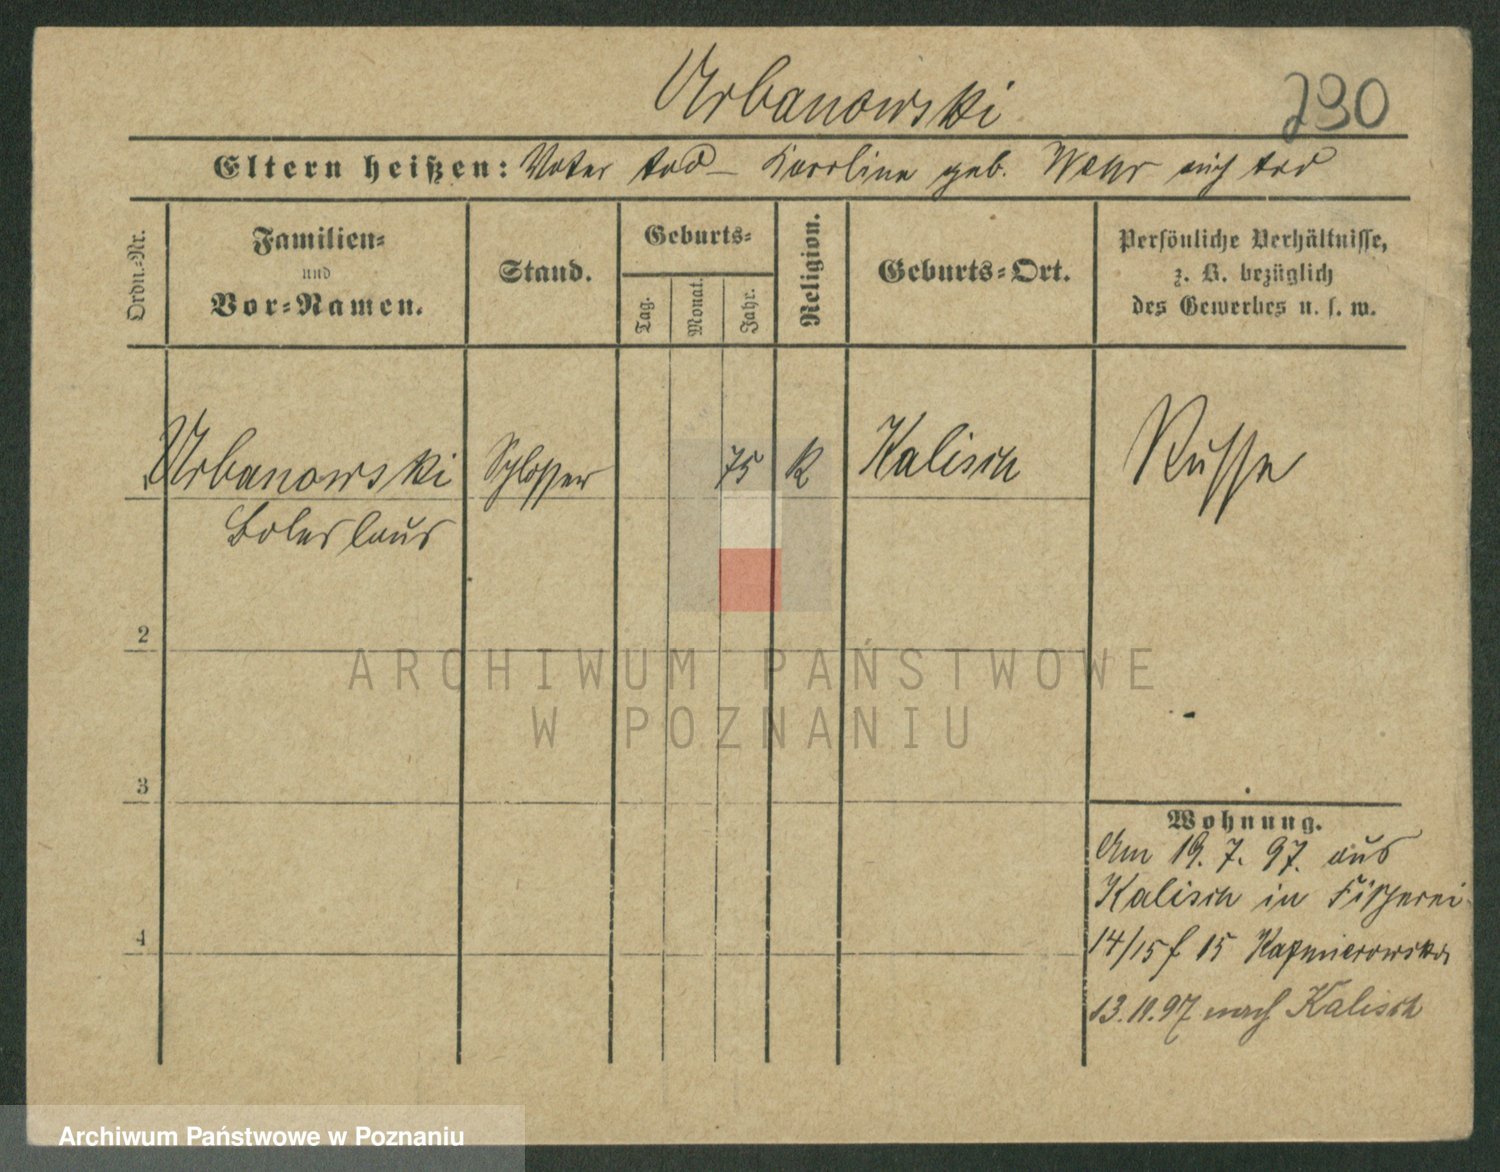 Urbanowski 230
Eltern heißen: Vater tod – Karoline geb. Wehr auch tod
Ordn.-Nr.
Familien-
und
Vor-Namen.
Stand.
Geburts-
Tag.
Monat.
Jahr.
Religion.
Geburts-Ort.
Persönliche Verhältnisse,
z. B. bezüglich
des Gewerbes u. s. w.
Urbanowski Schlosser 75 k Kalisch Russe
Boleslaus
2
ARCHIWUM PAŃSTWOWE
W POZNANIU
3
Wohnung.
Am 19. 7. 97. aus
Kalisch in Fischerei
4
14/15 f 15 Kazmierowska
13.11.97 nach Kalisch
Archiwum Państwowe w Poznaniu